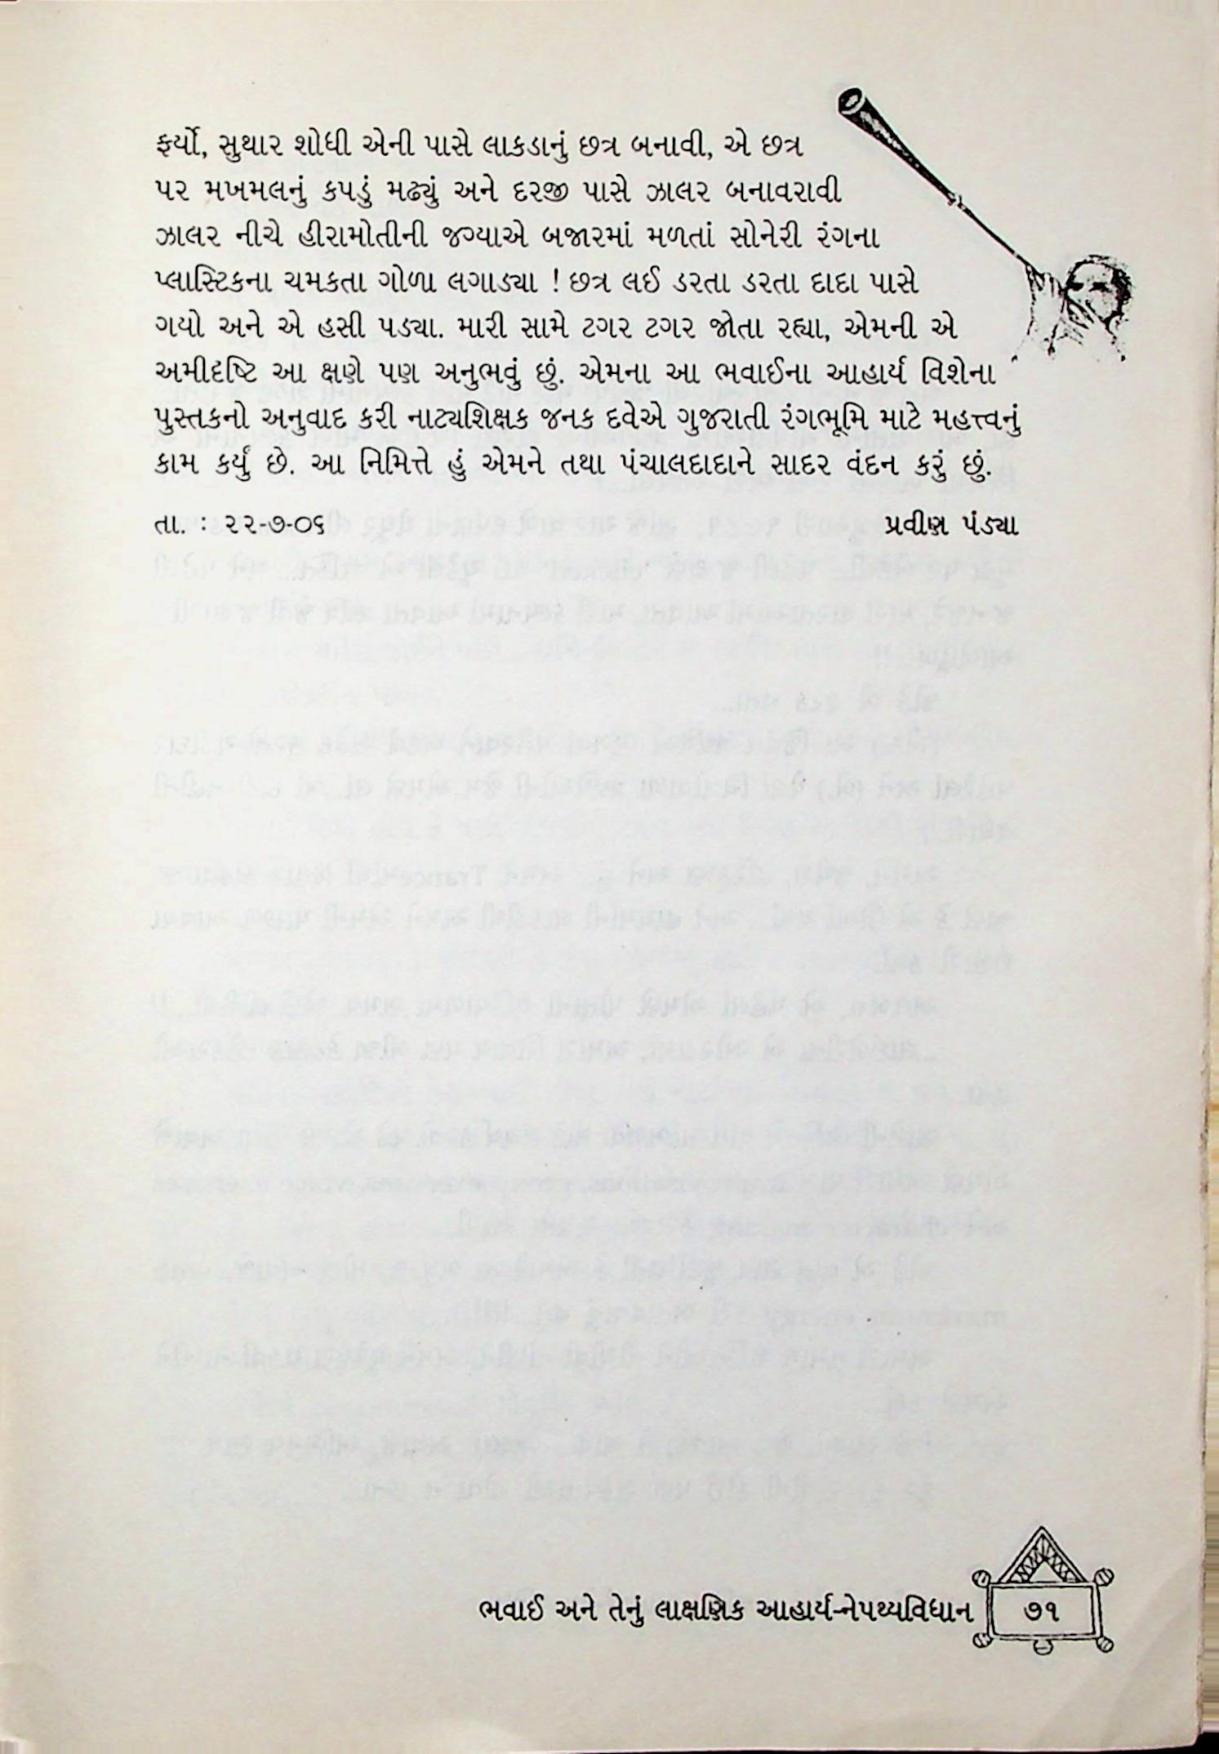 ફર્યો, સુથાર શોધી એની પાસે લાકડાનું છત્ર બનાવી, એ છત્ર
પર મખમલનું કપડું મઢ્યું અને દરજી પાસે ઝાલર બનાવરાવી
ઝાલર નીચે હીરામોતીની જગ્યાએ બજારમાં મળતાં સોનેરી રંગના
પ્લાસ્ટિકના ચમકતા ગોળા લગાડ્યા ! છત્ર લઈ ડરતા ડરતા દાદા પાસે
ગયો અને એ હસી પડ્યા. મારી સામે ટગર ટગર જોતા રહ્યા, એમની એ
અમીદૃષ્ટિ આ ક્ષણે પણ અનુભવું છું. એમના આ ભવાઈના આહાર્ય વિશેના
પુસ્તકનો અનુવાદ કરી નાટ્યશિક્ષક જનક દવેએ ગુજરાતી રંગભૂમિ માટે મહત્ત્વનું
કામ કર્યું છે. આ નિમિત્તે હું એમને તથા પંચાલદાદાને સાદર વંદન કરું છું.
તા. : ૨૨-૭-૦૬ પ્રવીણ પંડ્યા
ભવાઈ અને તેનું લાક્ષણિક આહાર્ય-નેપથ્યવિધાન ૭૧